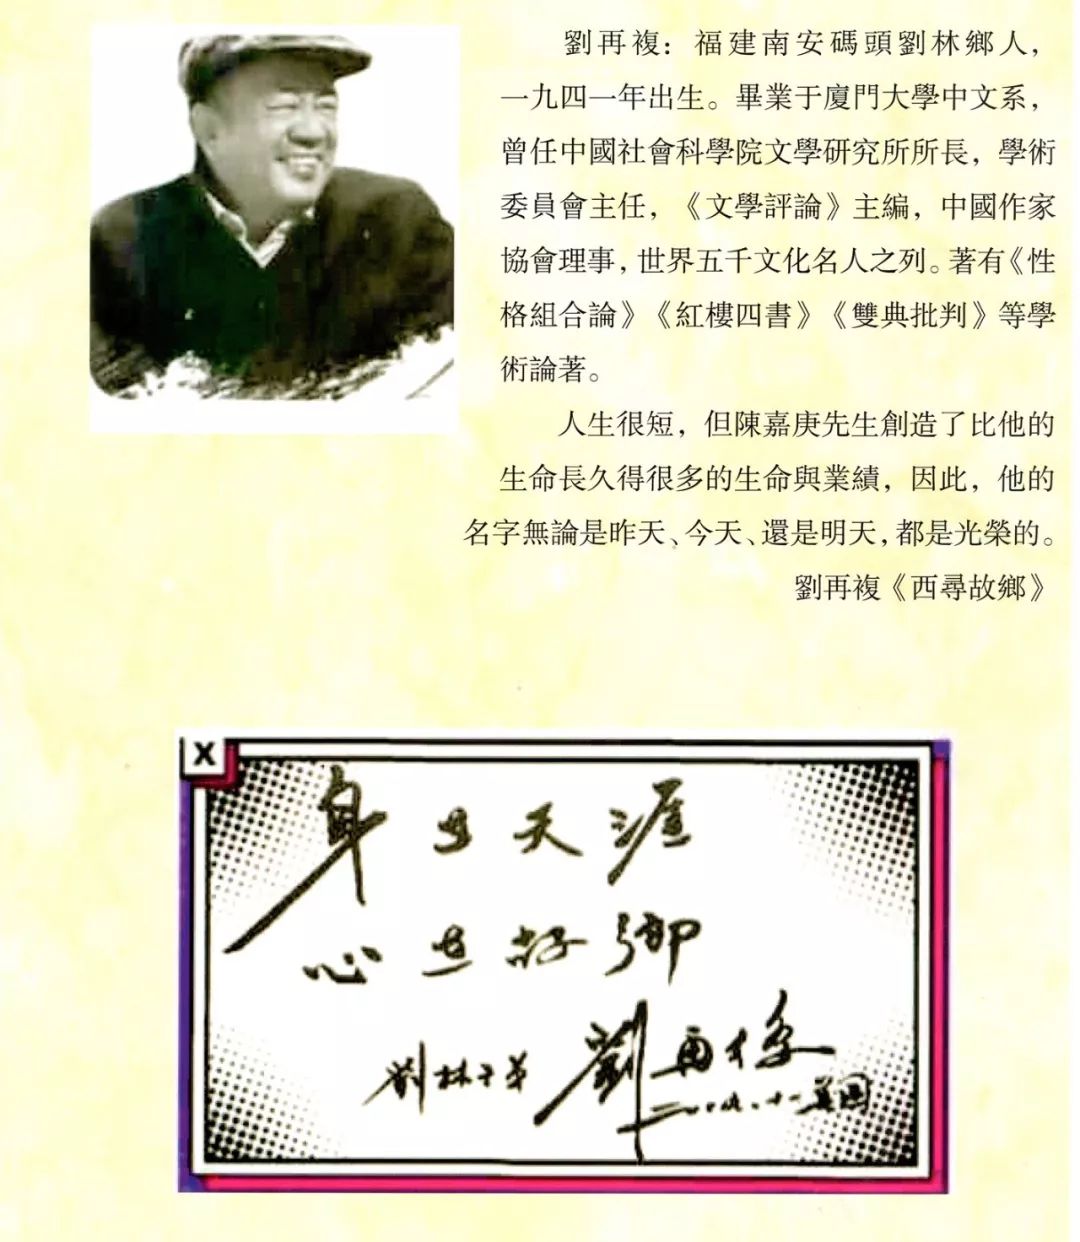 劉再複：福建南安碼頭劉林鄉人，
一九四一年出生。畢業于廈門大學中文系，
曾任中國社會科學院文學研究所所長，學術
委員會主任，《文學評論》主編，中國作家
協會理事，世界五千文化名人之列。著有《性
格組合論》《紅樓四書》《雙典批判》等學
術論著。
人生很短，但陳嘉庚先生創造了比他的
生命長久得很多的生命與業績，因此，他的
名字無論是昨天、今天、還是明天，都是光榮的。
劉再複《西尋故鄉》
X
身在天涯
心在故鄉
劉林子弟 劉再復
美國